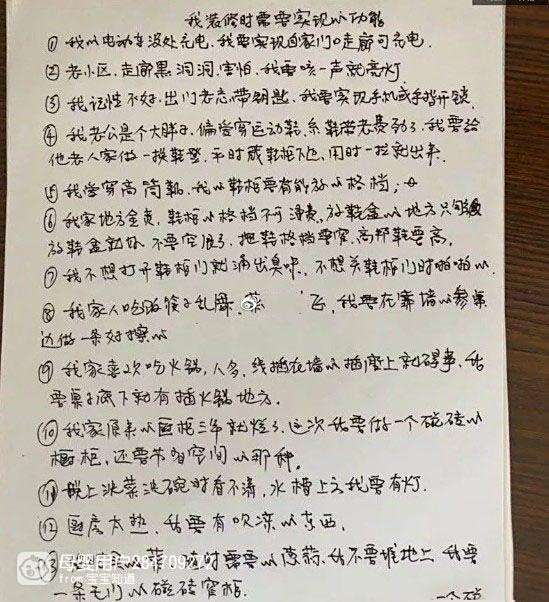 我装修时需要实现以功能
① 我以电动车没处充电，我要实现回家门口走廊可充电．
② 老小区，走廊黑洞洞，害怕，我要咳一声就亮灯．
③ 我记性不好，出门老忘带钥匙，我要实现手机或手指开锁．
④ 我老公是个大胖子，偏爱穿运动鞋，系鞋带老费劲了，我要给
他老人家做一换鞋凳，平时藏鞋柜下边，用时一拉就出来
⑤ 我爱穿高筒靴，我以鞋柜要有能放以格档；
⑥ 我家地方金贵，鞋柜以格档不可浪费，放鞋盒以地方只够
放鞋盒就好，不要空很了，把鞋格档要窄，高帮鞋要高．
⑦ 我不想打开鞋柜门就涌出臭味，不想关鞋柜门时啪啪以
⑧ 我家人吃 筷子乱 飞，我要在靠墙以餐桌
边做一条好擦以
⑨ 我家喜欢吃火锅，人多，线插在墙以插座上就碍事，我
要桌子底下就有插火锅地方．
⑩ 我家原来以厨柜三年就烂了，这次我要做一个瓷砖以
橱柜，还要节省空间以那种．
⑪ 晚上洗菜洗碗时看不清，水槽上方我要有灯．
⑫ 厨房太热，我要有吹凉以东西．
时需要以 我不要堆地上 我要
一条 门以瓷砖窄柜．
母婴用户
from 宝宝知道